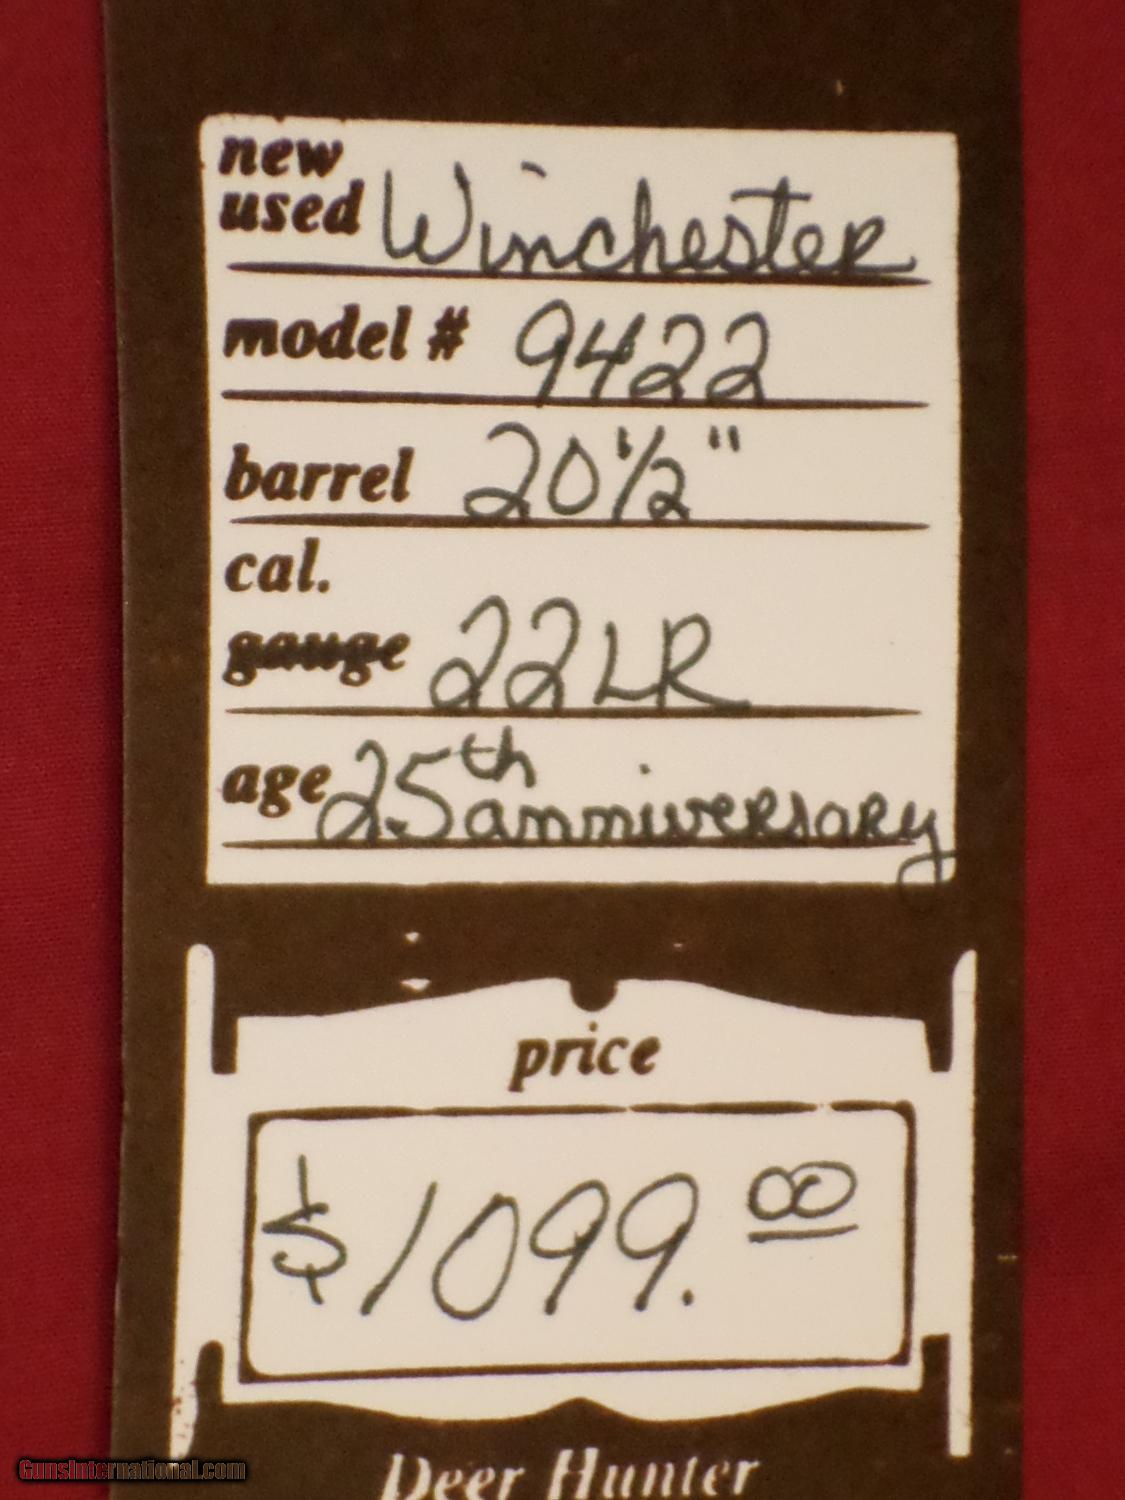 new
used Winchester
model # 9422
barrel 20 1/2"
cal.
gauge 22LR
age 25th anniversary
price
$1099.00
Deer Hunter
GunsInternational.com